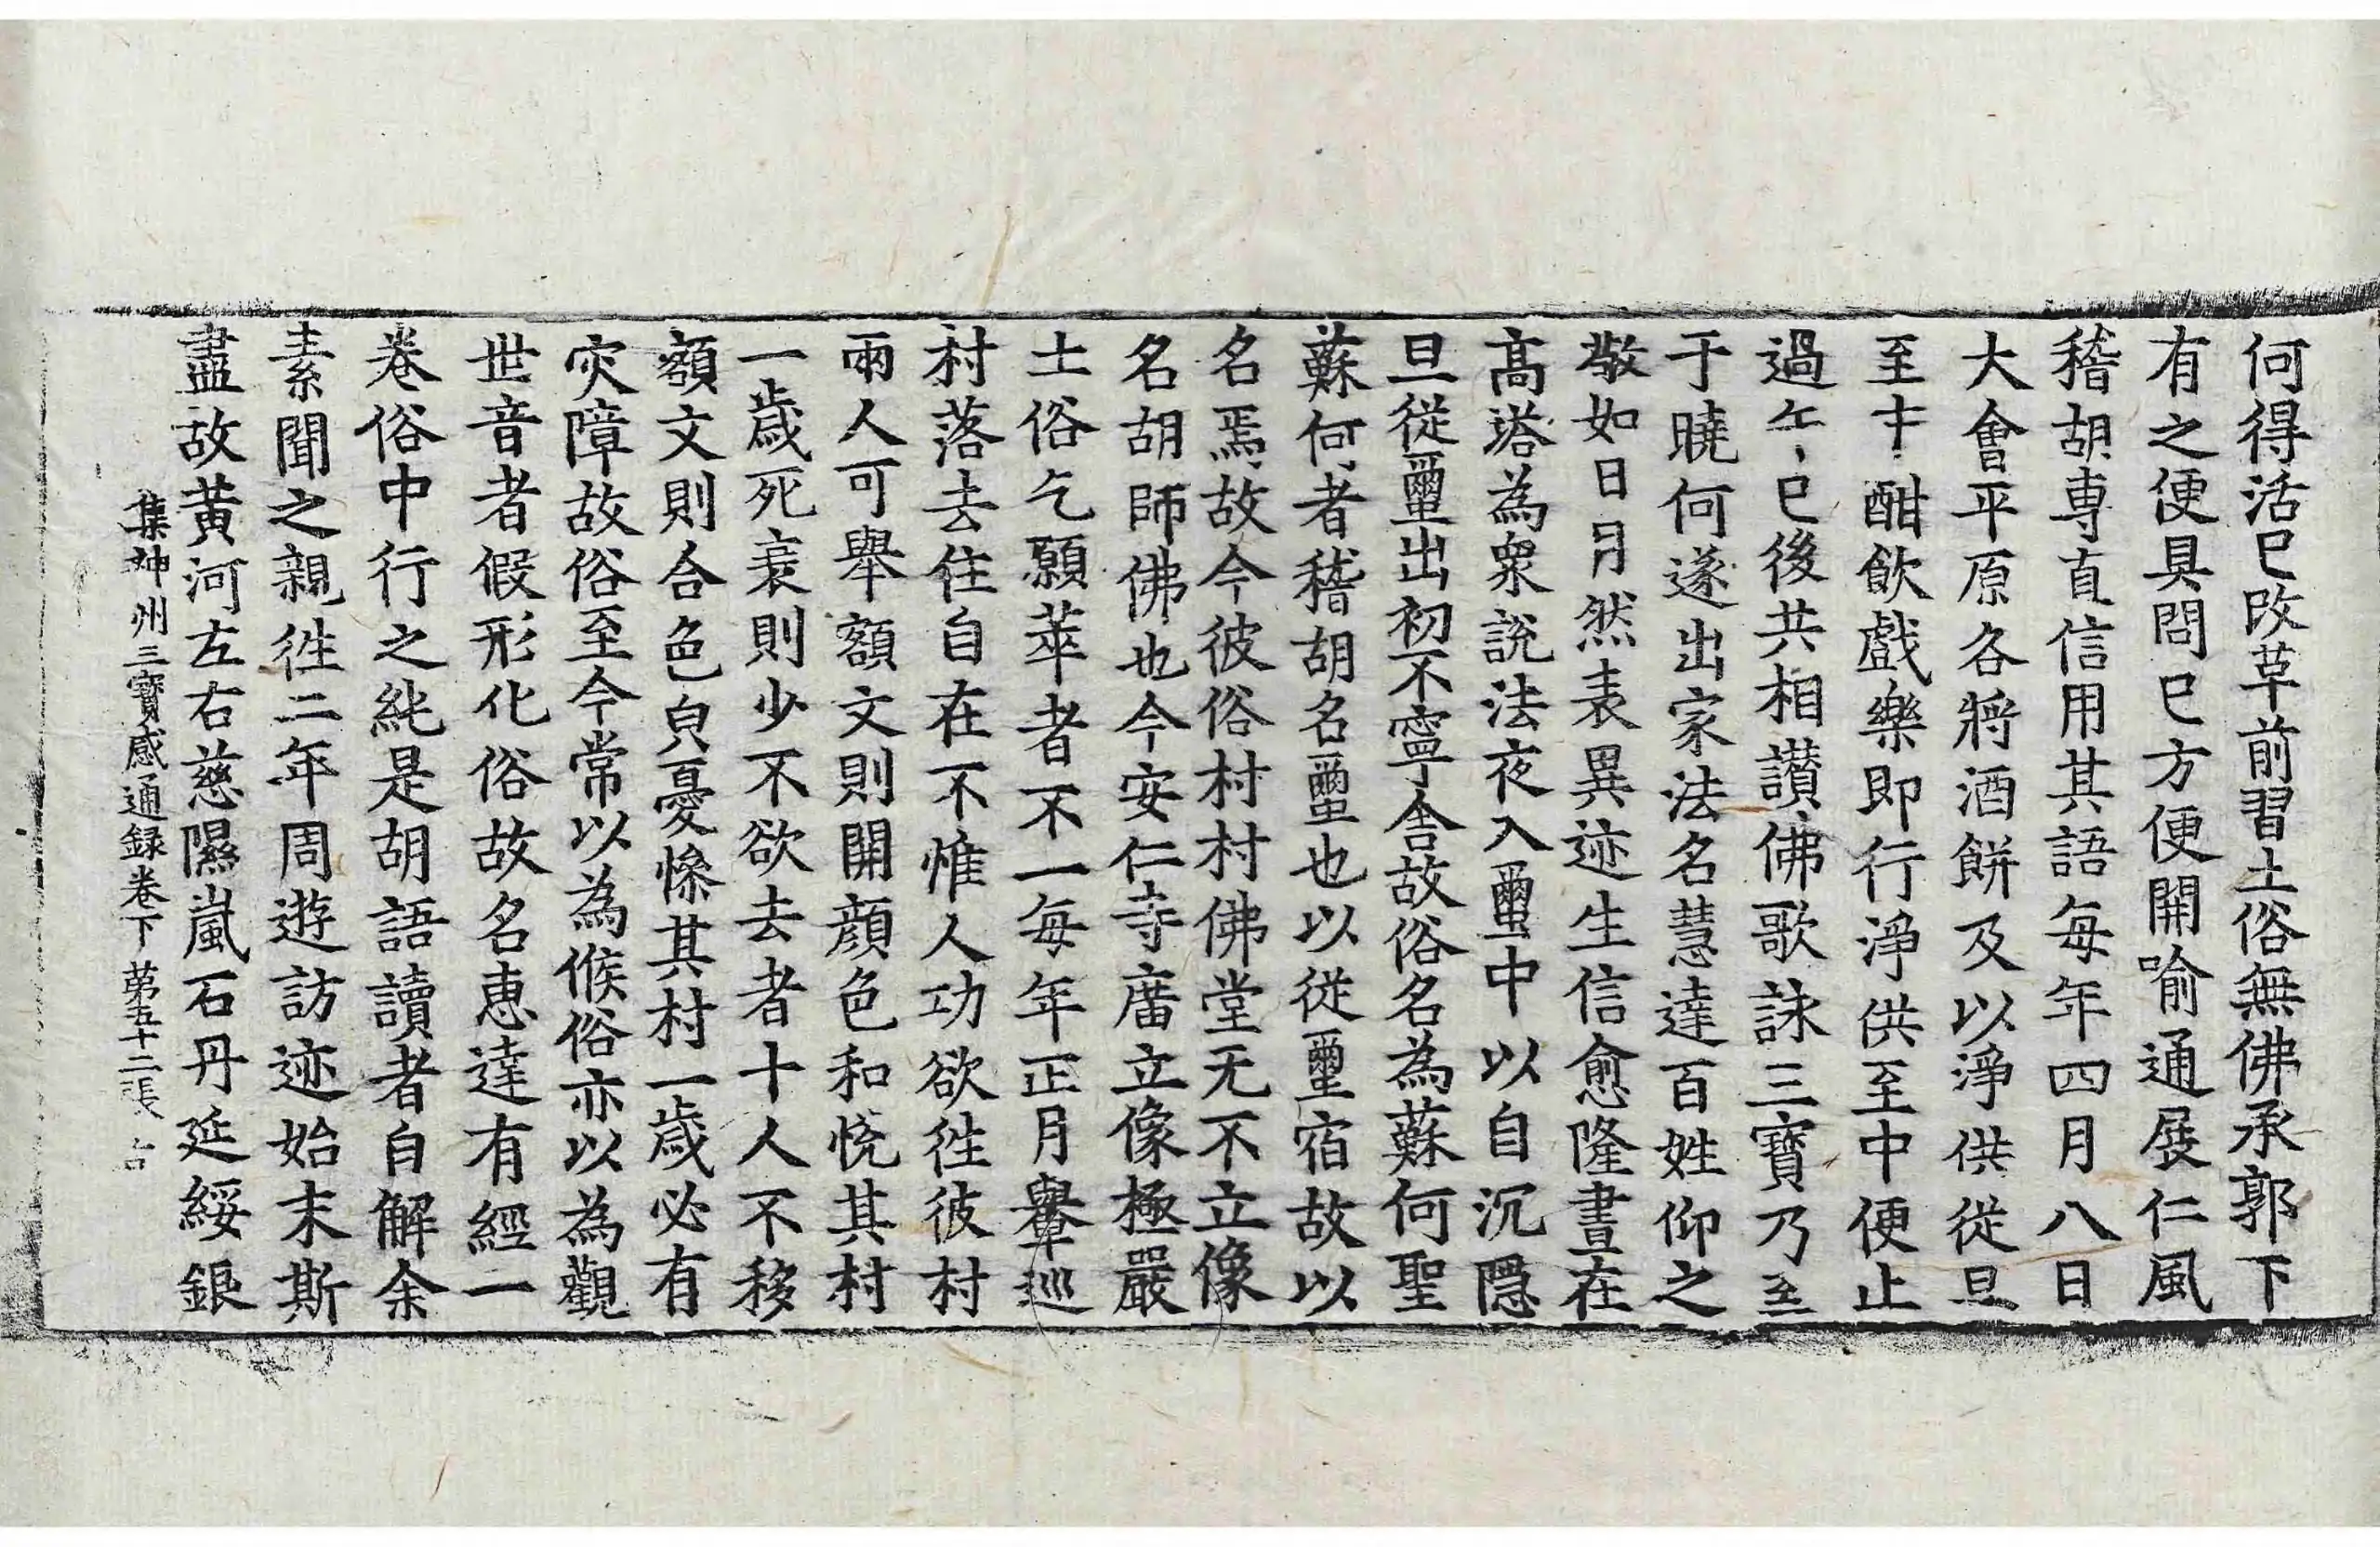 何得活巳改革前習土俗無佛承郭下
有之便具問巳方便開喻通展仁風
稽胡專直信用其語每年四月八日
大會平原各將酒餅及以淨供從旦
至午酣飲戲樂即行淨供至中便止
過午巳後共相讃佛歌詠三寶乃至
于曉何遂出家法名慧達百姓仰之
敬如日月然表異迹生信愈隆晝在
髙塔為衆說法夜入蠒中以自沉隠
旦從蠒出初不寧舍故俗名為蘇何聖
蘇何者稽胡名蠒也以從蠒宿故以
名焉故今彼俗村村佛堂无不立像
名胡師佛也今安仁寺廟立像極嚴
土俗乞願萃者不一每年正月轝巡
村落去住自在不惟人功欲徃彼村
兩人可舉額文則開顔色和恱其村
一歳死衰則少不欲去者十人不移
額文則合色皃憂慘其村一歳必有
灾障故俗至今常以為候俗亦以為觀
世音者假形化俗故名恵達有經一
卷俗中行之純是胡語讀者自解余
素聞之親徃二年周遊訪迹始末斯
盡故黄河左右慈隰嵐石丹延綏銀
集神州三寶感通録卷下 第五十二張